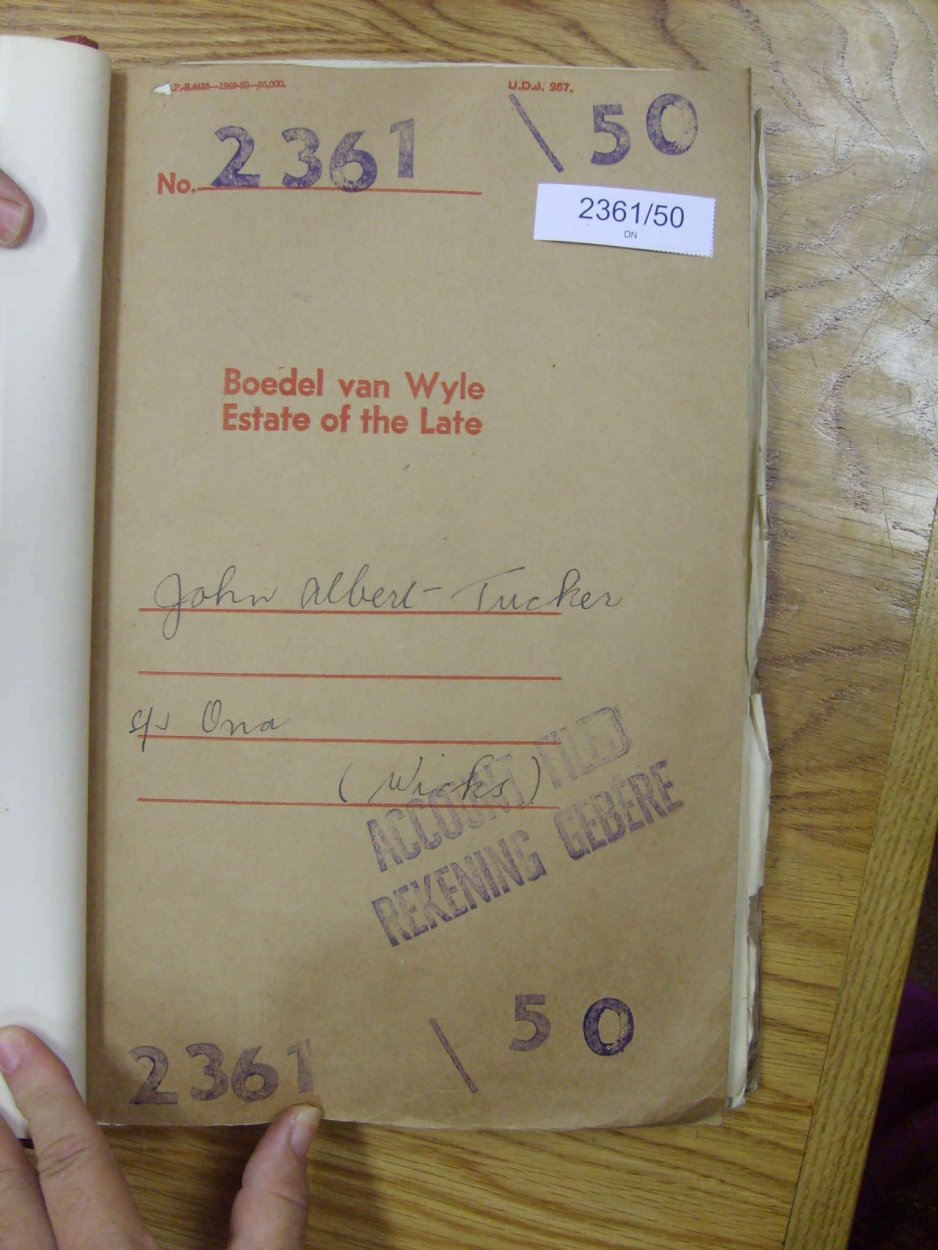 1949-50—85,000.
U.D.J. 257.
No. 2361 \ 50
2361/50
DN
Boedel van Wyle
Estate of the Late
John Albert Tucker
s/s Ona
(Wicks)
ACCOUNT FILED
REKENING GEBERE
2361 \ 50